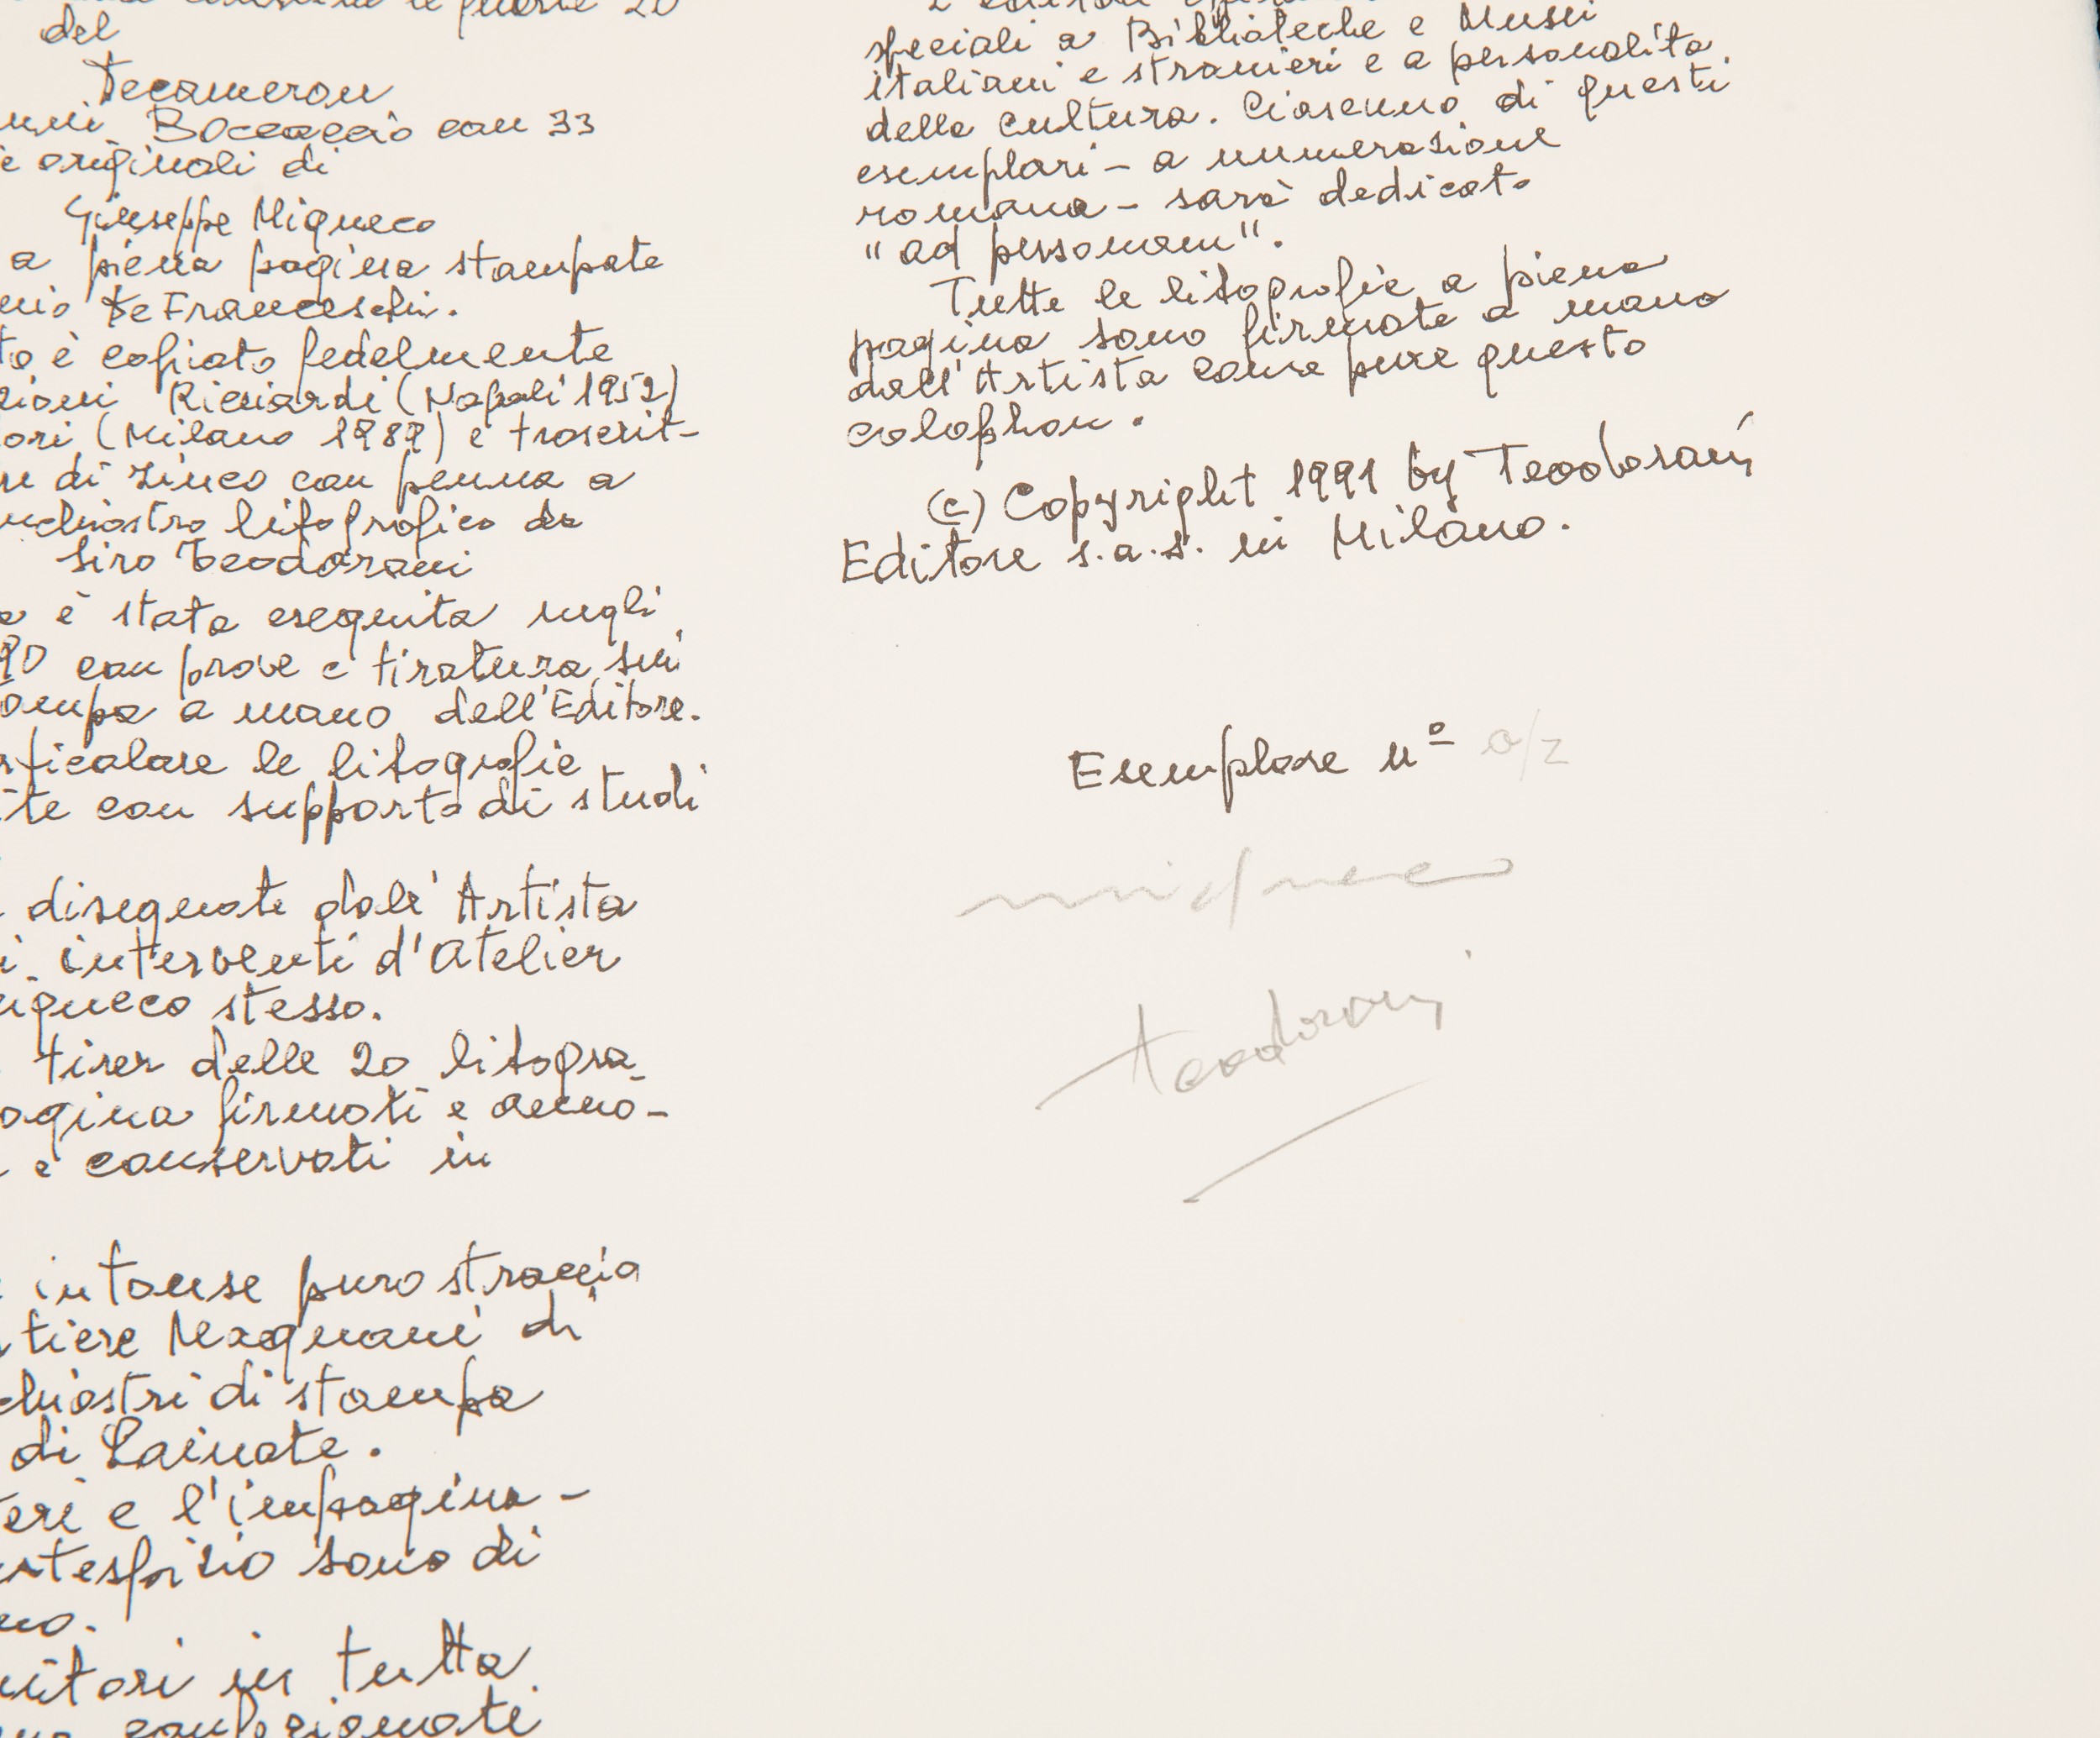 del
Decameron
Boccaccio con 33
originali di
Giuseppe Migneco
a piena pagina stampate
De Franceschi.
è copiato fedelmente
Ricciardi (Napoli 1952)
(Milano 1989) e trascrit-
di zinco con penna a
litografico da
Siro Teodorani
è stata eseguita negli
90 con prove e tiratura sui
a mano dell'Editore.
le litografie
con supporto di studi
disegnate dall'Artista
interventi d'Atelier
stesso.
tirer delle 20 litogra-
firmati e anno-
e conservati in
intonse puro straccio
Magnani di
di stampa
di Lainate.
e l'impagina-
sono di
in tutta
confezionate
speciali a Biblioteche e Musei
italiani e stranieri e a personalità
della cultura. Ciascuno di questi
esemplari - a numerazione
romana - sarà dedicato
"ad personam".
Tutte le litografie a piena
pagina sono firmate a mano
dall'Artista come pure questo
colophon.
(c) Copyright 1991 by Teodorani
Editore s.a.s. in Milano.
Esemplare nº 0/2
migneco
teodorani